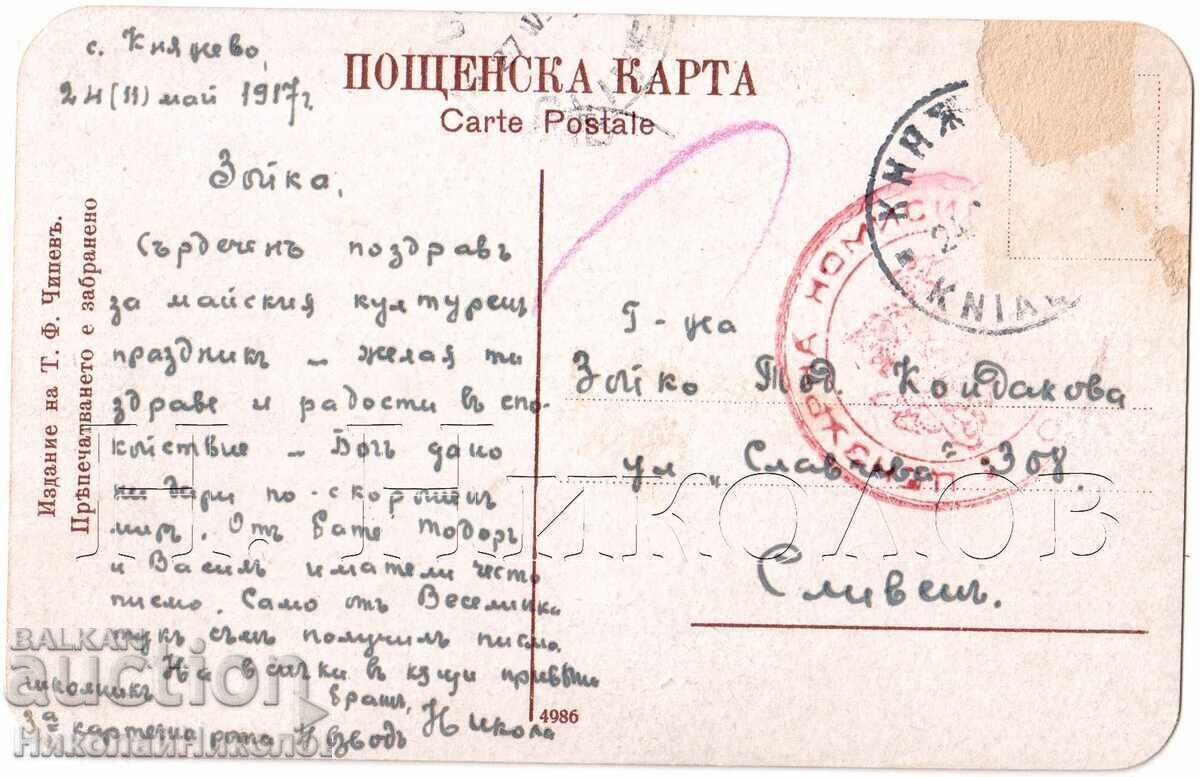 с. Княжево,
24 (11) май 1917 г
ПОЩЕНСКА КАРТА
Carte Postale
Зойка,
Сърдеченъ поздравъ
за майския културенъ
праздникъ – желая ти
здраве и радости въ спо-
койствие – Богъ дано
ни дари по-скорошенъ
миръ. Отъ бате Тодоръ
и Василъ имате ли често
писмо. Само отъ Веселинка
тукъ съмъ получилъ писмо.
На всички въ кѫщи привѣти
братъ, Никола
3а картечна рота взводъ
Г-ца
Зойка Тод. Койдакова
ул. „Славянска" 308.
Сливенъ.
Издание на Т. Ф. Чипевъ.
Прѣпечатването е забранено
4986
КНЯЖ
KNIAJ
ЦЕНЗУРНА КОМИСИЯ
Н. НИКОЛОВ
BALKAN
auction
НиколайНиколов